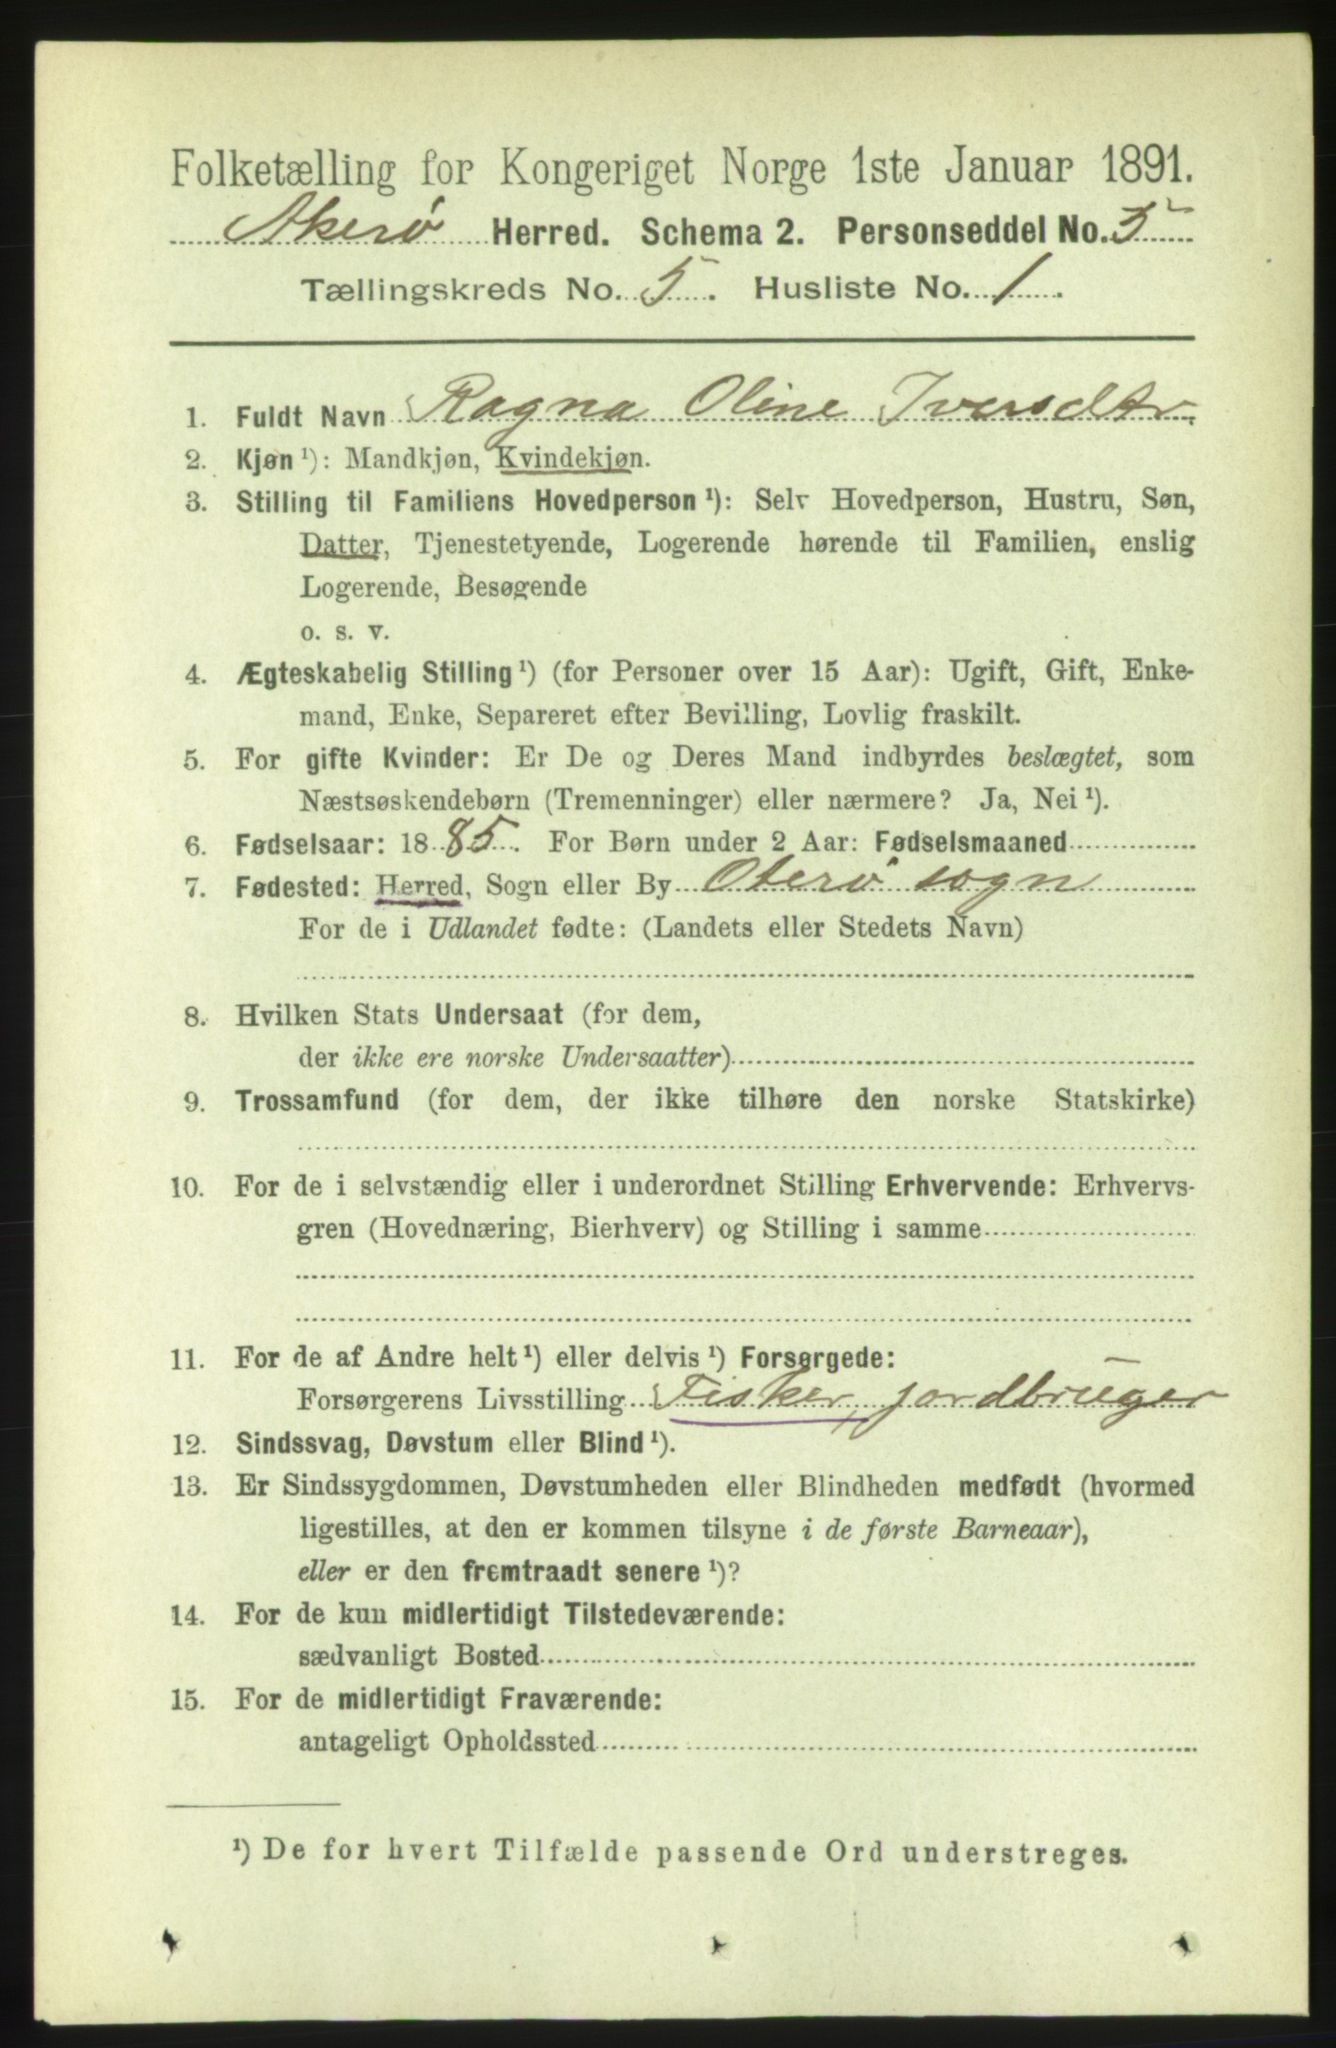 Folketælling for Kongeriget Norge 1ste Januar 1891.
Akerø Herred. Schema 2. Personseddel No. 5
Tællingskreds No. 5. Husliste No. 1.
1. Fuldt Navn Ragna Oline Iversdtr.
2. Kjøn ¹): Mandkjøn, Kvindekjøn.
3. Stilling til Familiens Hovedperson ¹): Selv Hovedperson, Hustru, Søn,
Datter, Tjenestetyende, Logerende hørende til Familien, enslig
Logerende, Besøgende
o. s. v.
4. Ægteskabelig Stilling ¹) (for Personer over 15 Aar): Ugift, Gift, Enke-
mand, Enke, Separeret efter Bevilling, Lovlig fraskilt.
5. For gifte Kvinder: Er De og Deres Mand indbyrdes beslægtet, som
Næstsøskendebørn (Tremenninger) eller nærmere? Ja, Nei ¹).
6. Fødselsaar: 1885. For Børn under 2 Aar: Fødselsmaaned
7. Fødested: Herred, Sogn eller By Oterø sogn
For de i Udlandet fødte: (Landets eller Stedets Navn)
8. Hvilken Stats Undersaat (for dem,
der ikke ere norske Undersaatter)
9. Trossamfund (for dem, der ikke tilhøre den norske Statskirke)
10. For de i selvstændig eller i underordnet Stilling Erhvervende: Erhvervs-
gren (Hovednæring, Bierhverv) og Stilling i samme
11. For de af Andre helt ¹) eller delvis ¹) Forsørgede:
Forsørgerens Livsstilling Fisker, jordbruger
12. Sindssvag, Døvstum eller Blind ¹).
13. Er Sindssygdommen, Døvstumheden eller Blindheden medfødt (hvormed
ligestilles, at den er kommen tilsyne i de første Barneaar),
eller er den fremtraadt senere ¹)?
14. For de kun midlertidigt Tilstedeværende:
sædvanligt Bosted
15. For de midlertidigt Fraværende:
antageligt Opholdssted
¹) De for hvert Tilfælde passende Ord understreges.